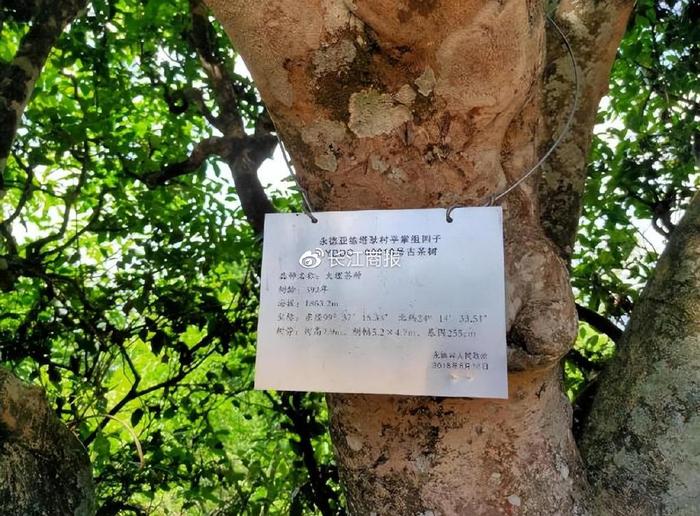 永德亚练塔驮村平掌组四子
号古茶树
@长江商报
品种名称：大理茶种
树龄：392年
海拔：1863.2m
坐标：东经99° 37′ 北纬24° 14′ 33.51″
树势：树高 树幅5.2×4.7m，基围255cm
永德县人民政府
2018年6月